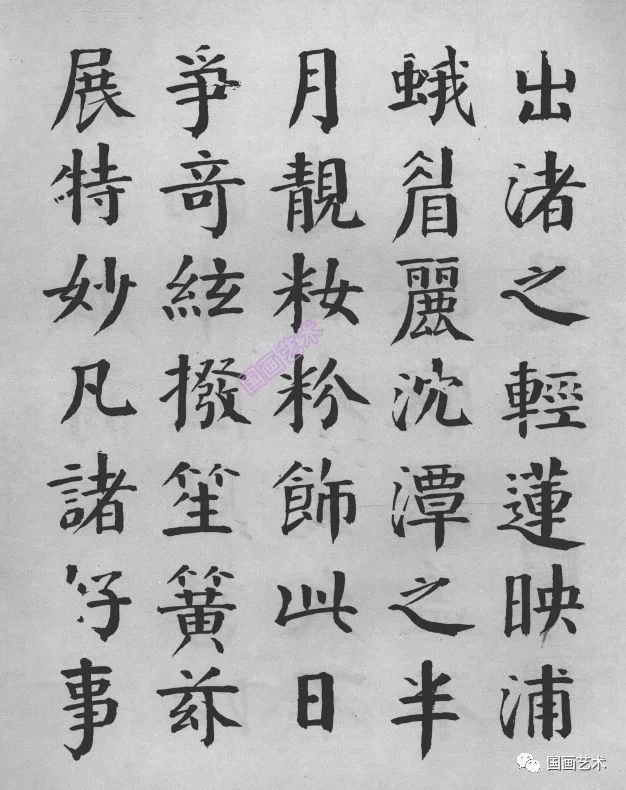 出渚之輕蓮映浦
蛾眉麗沈潭之半
月靚籹粉飾此日
爭奇絃撥笙簧亦
展特妙凡諸好事
国画艺术
国画艺术